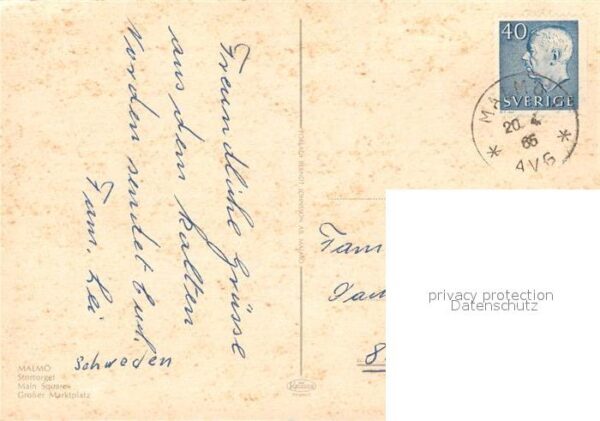 Freundliche Grüsse
aus dem kalten
Norden sendet Euch
Fam. Lei
Schweden
MALMÖ
Stortorget
Main Square
Großer Marktplatz
40
SVERIGE
MALMÖ
20. 4
65
AVG
Fam
8
privacy protection
Datenschutz